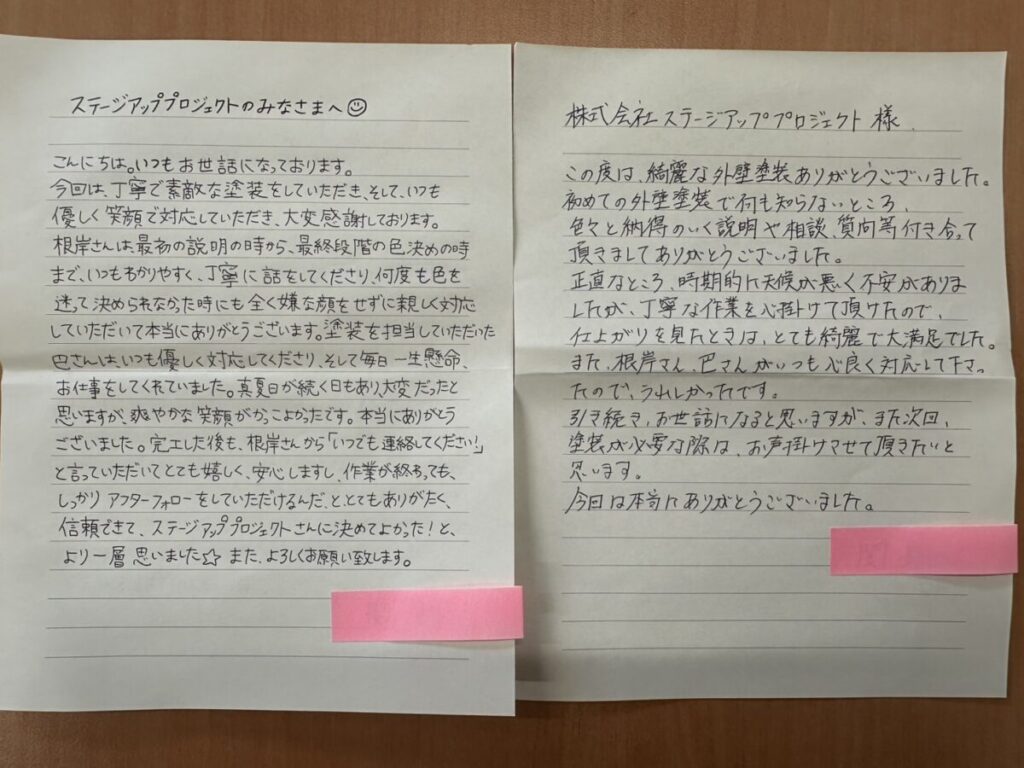 ステージアッププロジェクトのみなさまへ☺
こんにちは。いつもお世話になっております。
今回は、丁寧で素敵な塗装をしていただき、そして、いつも
優しく笑顔で対応していただき、大変感謝しております。
根岸さんは、最初の説明の時から、最終段階の色決めの時
まで、いつもわかりやすく、丁寧に話をしてくださり、何度も色を
迷って決められなかった時にも全く嫌な顔をせずに親しく対応
していただいて本当にありがとうございます。塗装を担当していただいた
巴さんは、いつも優しく対応してくださり、そして毎日一生懸命、
お仕事をしてくれていました。真夏日が続く日もあり、大変だったと
思いますが、爽やかな笑顔がかっこよかったです。本当にありがとう
ございました。完工した後も、根岸さんから「いつでも連絡してください!」
と言っていただいてとても嬉しく、安心しますし、作業が終わっても、
しっかりアフターフォローをしていただけるんだ、と、とてもありがたく、
信頼できて、ステージアッププロジェクトさんに決めてよかった!と、
より一層思いました☆ また、よろしくお願い致します。
株式会社ステージアッププロジェクト様
この度は、綺麗な外壁塗装ありがとうございました。
初めての外壁塗装で何も知らないところ、
色々と納得のいく説明や相談、質問等付き合って
頂きましてありがとうございました。
正直なところ、時期的に天候が悪く不安がありま
したが、丁寧な作業を心掛けて頂けたので、
仕上がりを見たときは、とても綺麗で大満足でした。
また、根岸さん、巴さんがいつも心良く対応して下さっ
たので、うれしかったです。
引き続き、お世話になると思いますが、また次回、
塗装が必要な際は、お声掛けさせて頂きたいと
思います。
今回は本当にありがとうございました。